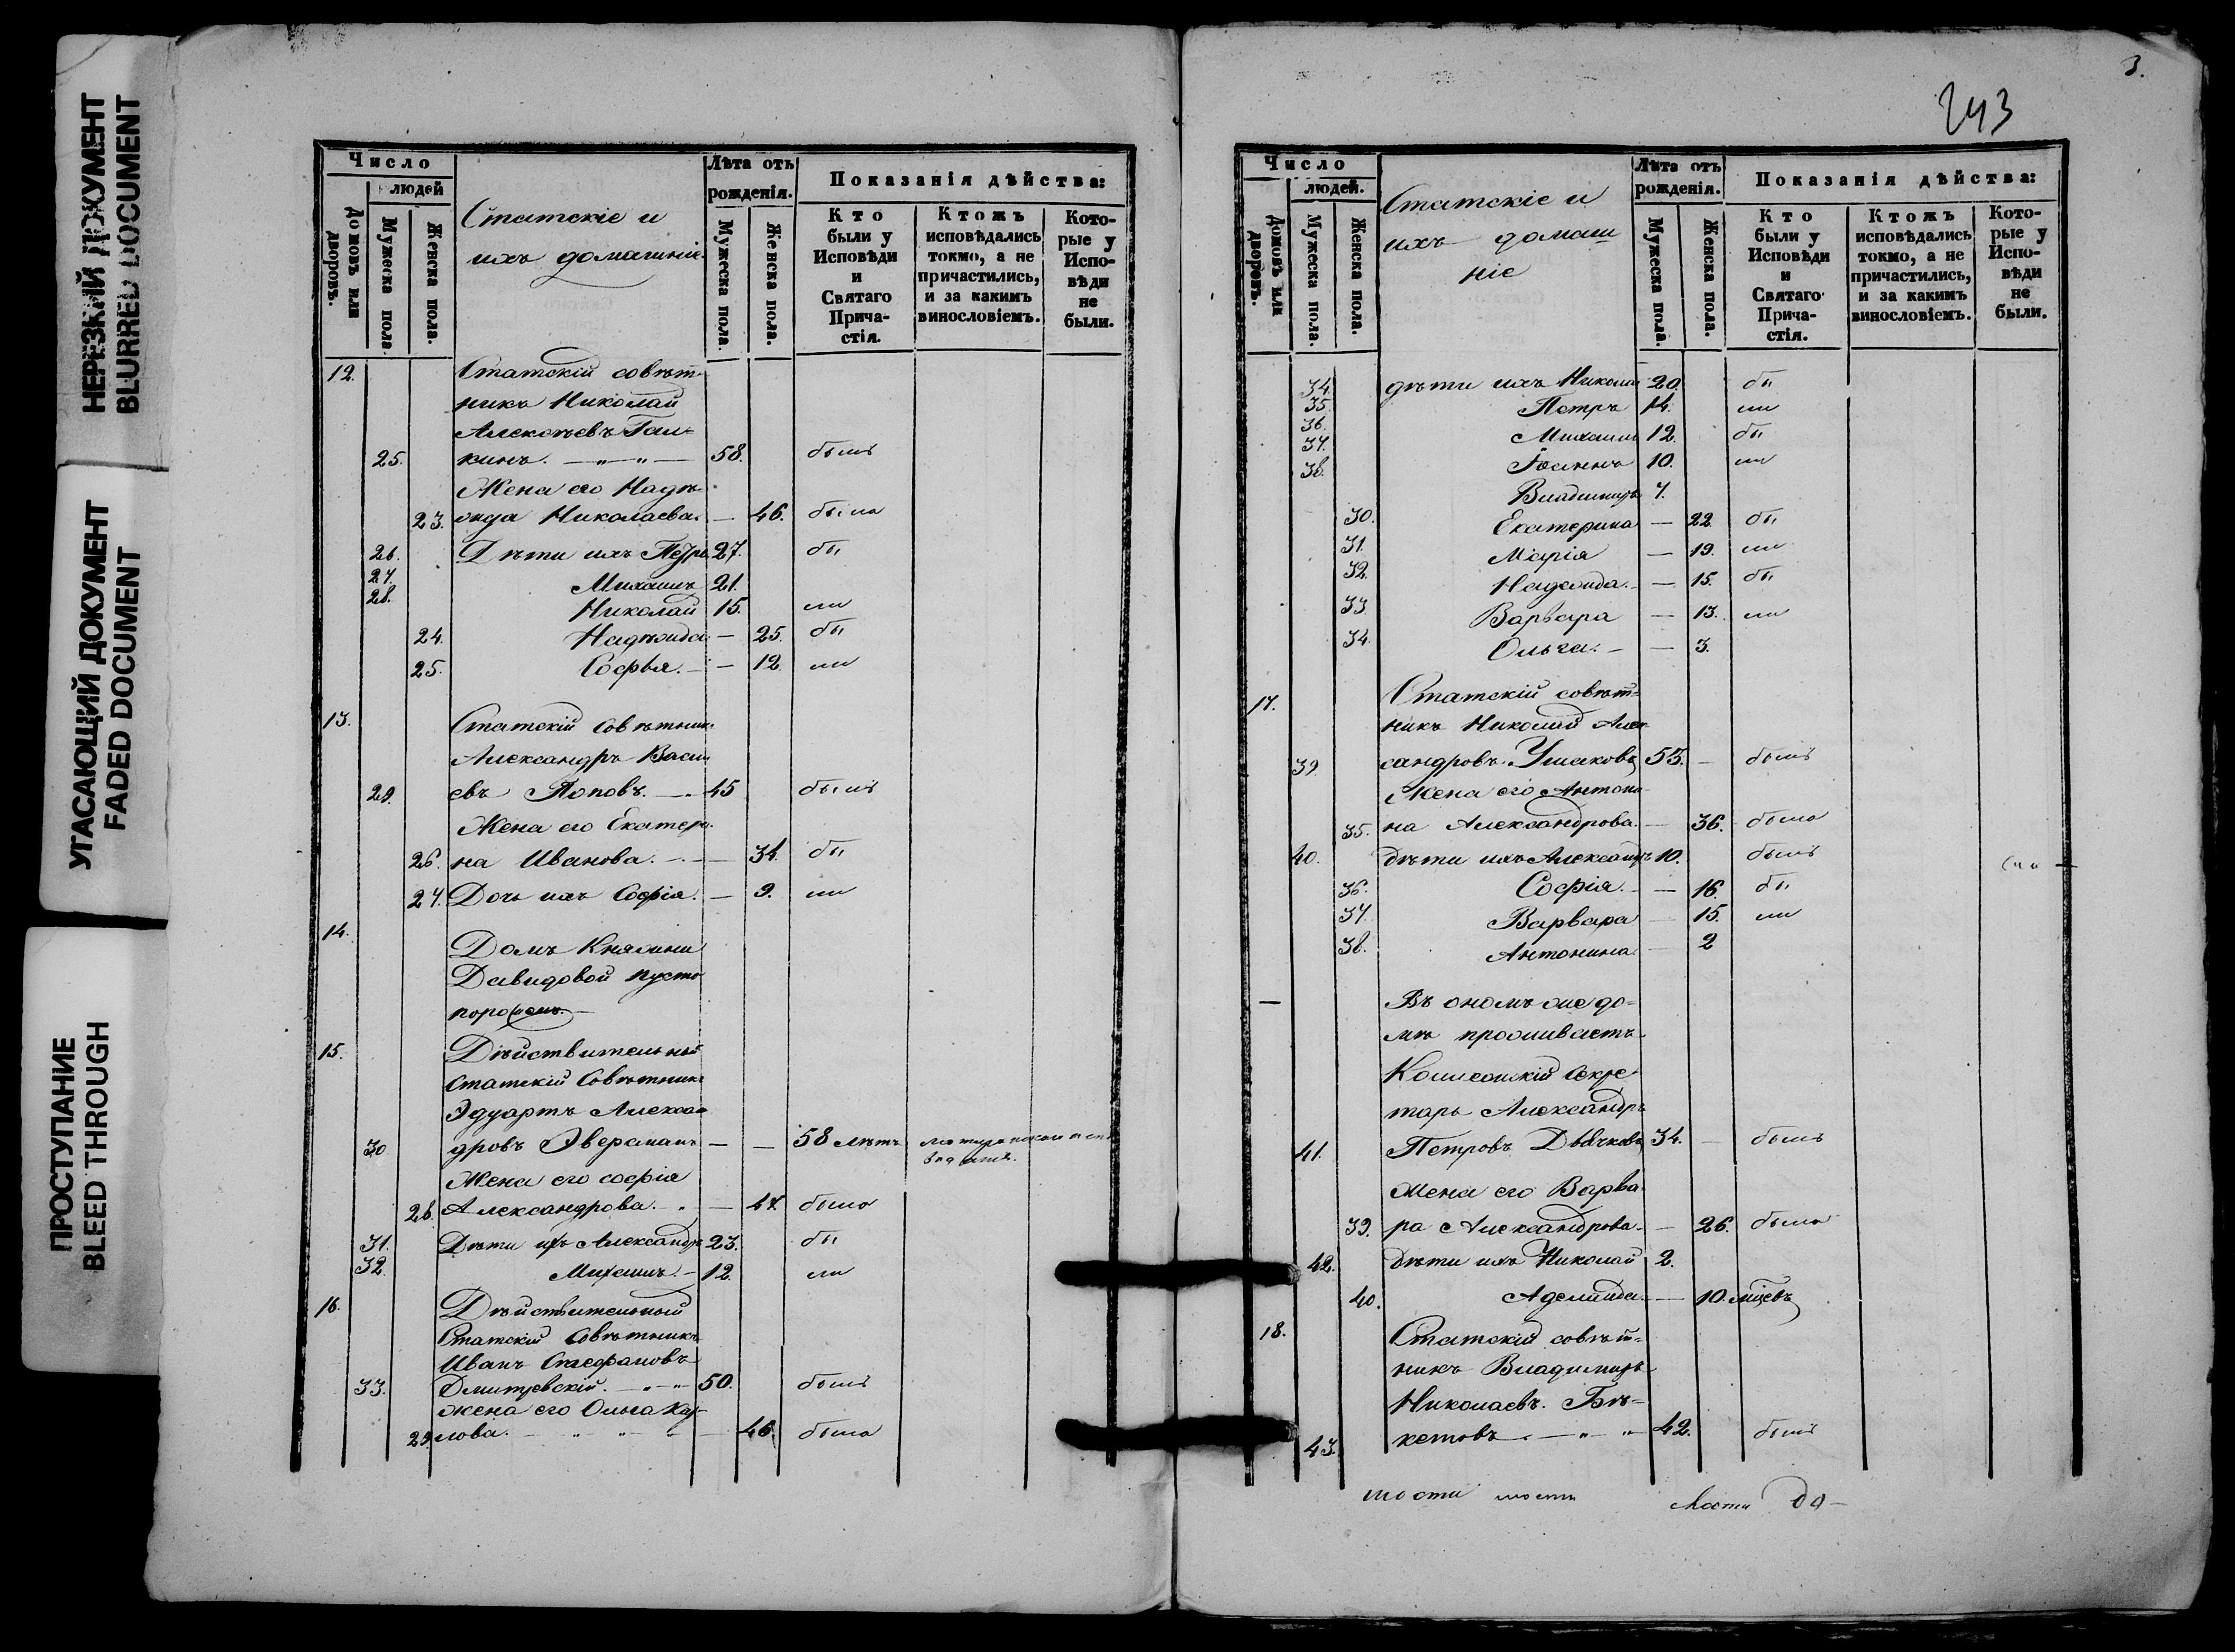 НЕРЕЗКИЙ ДОКУМЕНТ
BLURRED DOCUMENT
УГАСАЮЩИЙ ДОКУМЕНТ
FADED DOCUMENT
ПРОСТУПАНИЕ
BLEED THROUGH
Число
людей
Домовъ или дворовъ.
Мужеска пола.
Женска пола.
Статскіе и
ихъ домашніе.
Лѣта отъ рожденія.
Мужеска пола.
Женска пола.
Показанія дѣйства:
Кто были у Исповѣди и Святаго Прича-стія.
Ктожъ исповѣдались токмо, а не причастились, и за какимъ винословіемъ.
Кото-рые у Испо-вѣди не были.
12. Статскій совѣт-
никъ Николай
Алексѣевъ Гал-
25. кинъ. 58. былъ
Жена его Надѣ-
23. жда Николаева. — 46. была
26. Дѣти ихъ Петръ 27. бы
27. Михаилъ 21.
28. Николай 15. ли
24. Надежда — 25. бы
25. Софья. — 12. ли
13. Статскій Совѣтникъ
Александръ Василь
29. евъ Поповъ. — 45 былъ
Жена его Екатери-
26. на Иванова. — 34. бы
27. Дочь ихъ Софія. — 9. ли
14. Домъ Княгини
Давидовой пусто
порожж.
15. Дѣйствительный
Статскій Совѣтникъ
Эдуартъ Алексан
30 дровъ Эверсманъ — — 58 лѣтъ
Жена его софія
28. Александрова. — 47. была
31. Дѣти ихъ Александръ 23. бы
32. Михаилъ. — 12. ли
16. Дѣйствительный
Статскій Совѣтникъ
Иванъ Стефановъ
33. Дмитревскій. 50. былъ
жена его Ольга Кар-
29. лова. — 46. была
3.
243
Число
людей.
Домовъ или дворовъ.
Мужеска пола.
Женска пола.
Статскіе и
ихъ домаш
ніе
Лѣта отъ рожденія.
Мужеска пола.
Женска пола.
Показанія дѣйства:
Кто были у Исповѣди и Святаго Прича-стія.
Ктожъ исповѣдались токмо, а не причастились, и за какимъ винословіемъ.
Кото-рые у Испо-вѣди не были.
34. дѣти ихъ Николай 20. бы
35. Петръ 14. ли
36. Михаилъ 12. бы
37. Іоаннъ 10. ли
38. Владиміръ 7.
30. Екатерина — 22. бы
31. Марія — 19. ли
32. Надежда. — 15. бы
33. Варвара — 13. ли
34. Ольга. — 3.
17. Статскій совѣт-
никъ Николай Алек
39. сандровъ Ушаковъ 53. — былъ
Жена его Антони-
35. на Александрова. — 36. была
40. дѣти ихъ Александръ 10. былъ
36. Софія. — 16. бы
37. Варвара — 15. ли
38. Антонина. — 2
— Въ ономъ же до-
мѣ проживаетъ
Коллежскій Секре-
тарь Александръ
41. Петровъ Дьячковъ 34. — былъ
Жена его Варва-
39. ра Александрова. — 26. была
42. дѣти ихъ Николай 2.
40. Аделаида. — 10. мѣсцевъ
18. Статскій совѣт-
никъ Владиміръ
Николаевъ. Бѣ-
43. кетовъ. 42. былъ